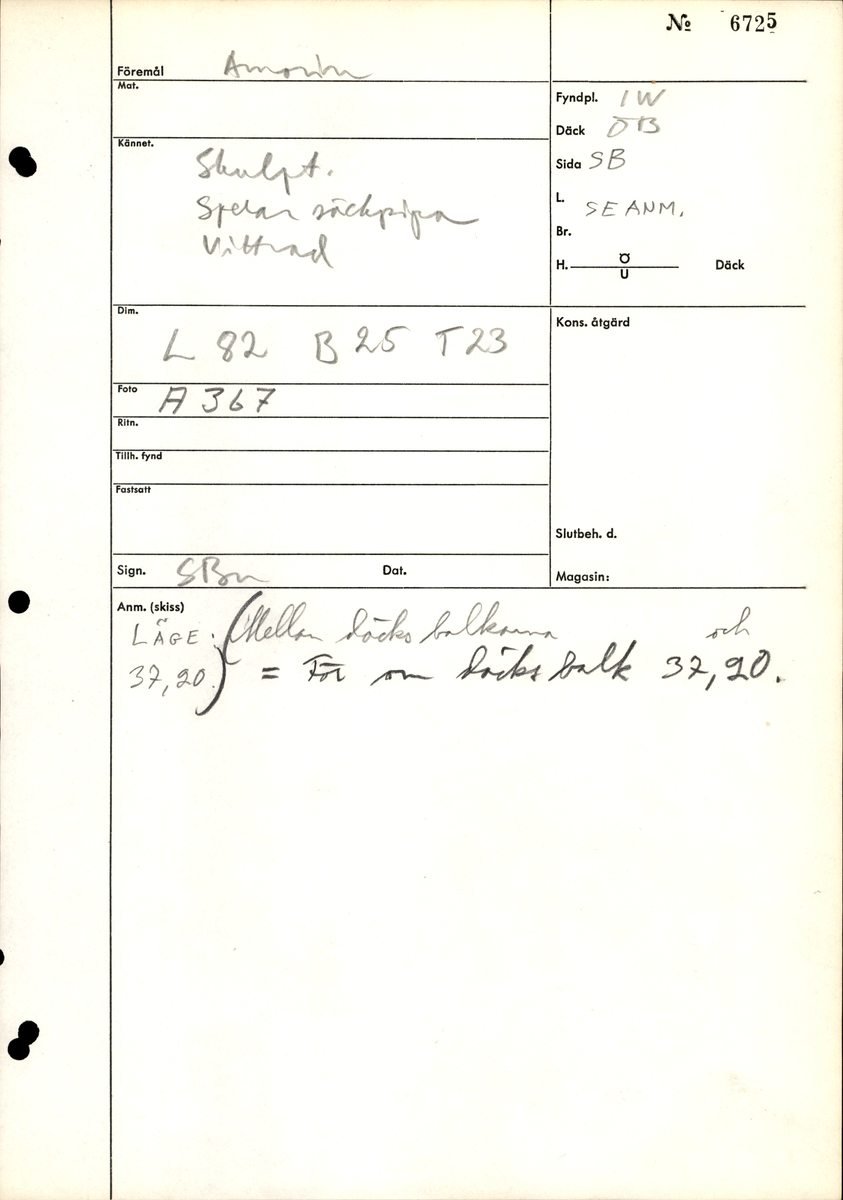 No 6725
Föremål Amorin
Mat.
Fyndpl. IW
Däck ÖB
Kännet.
Skulpt.
Spelar säckpipa
Vittrad
Sida SB
L. SE ANM.
Br.
H. Ö
U Däck
Dim.
L 82 B 25 T 23
Kons. åtgärd
Foto A 367
Ritn.
Tillh. fynd
Fastsatt
Slutbeh. d.
Sign. SBn Dat.
Magasin:
Anm. (skiss)
LÄGE: (Mellan däcksbalkarna och
37,20.) = För om däcksbalk 37,20.